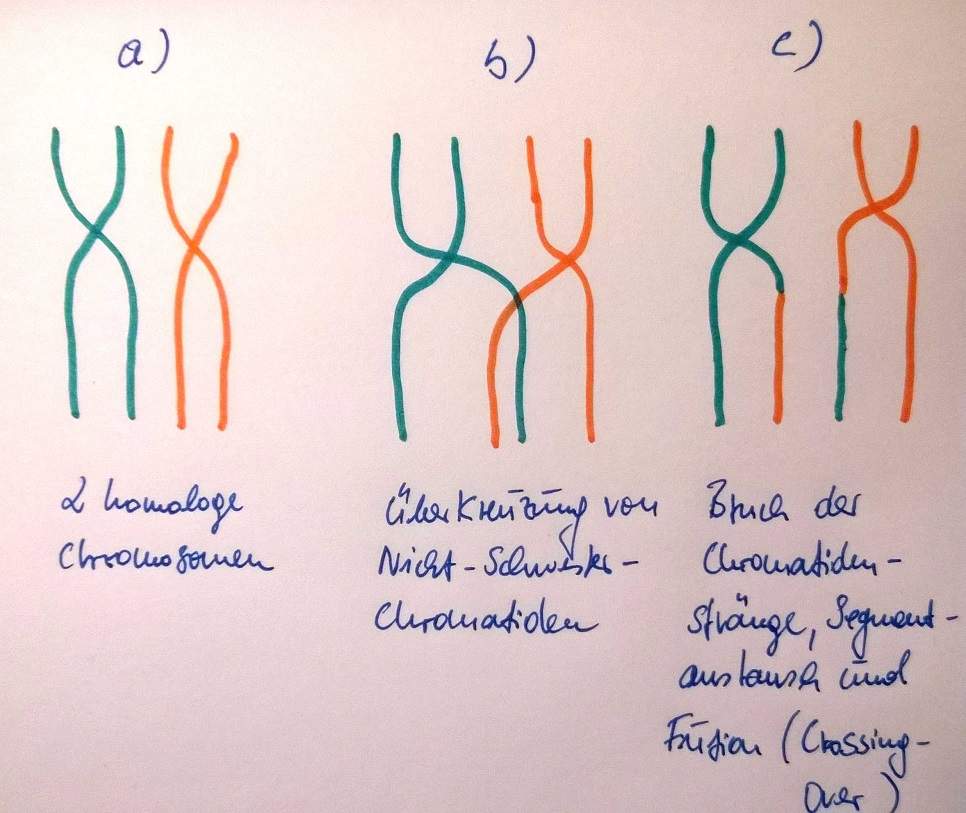 a)
b)
c)
2 homologe
Chromosomen
Überkreuzung von
Nicht-Schwester-
Chromatiden
Bruch der
Chromatiden-
stränge, Segment-
austausch und
Fusion (Crossing-
Over)